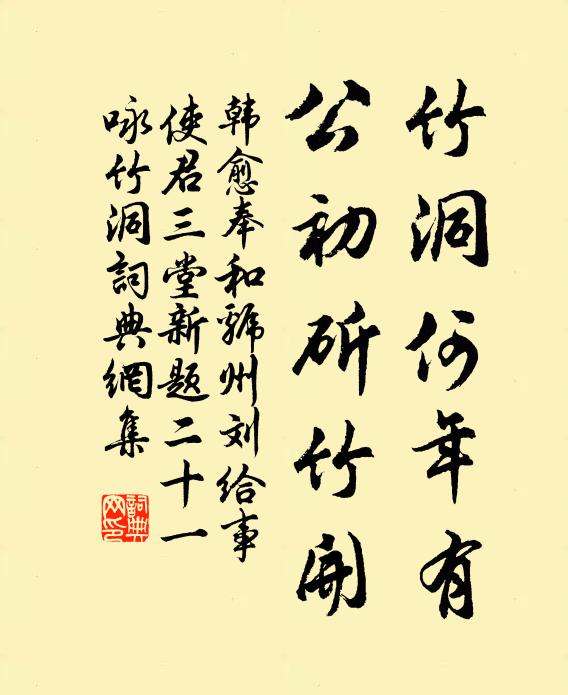 竹洞何年有
公初斫竹開
韩愈奉和虢州刘给事
使君三堂新题二十一
咏竹洞詞典網集
詞典
网印